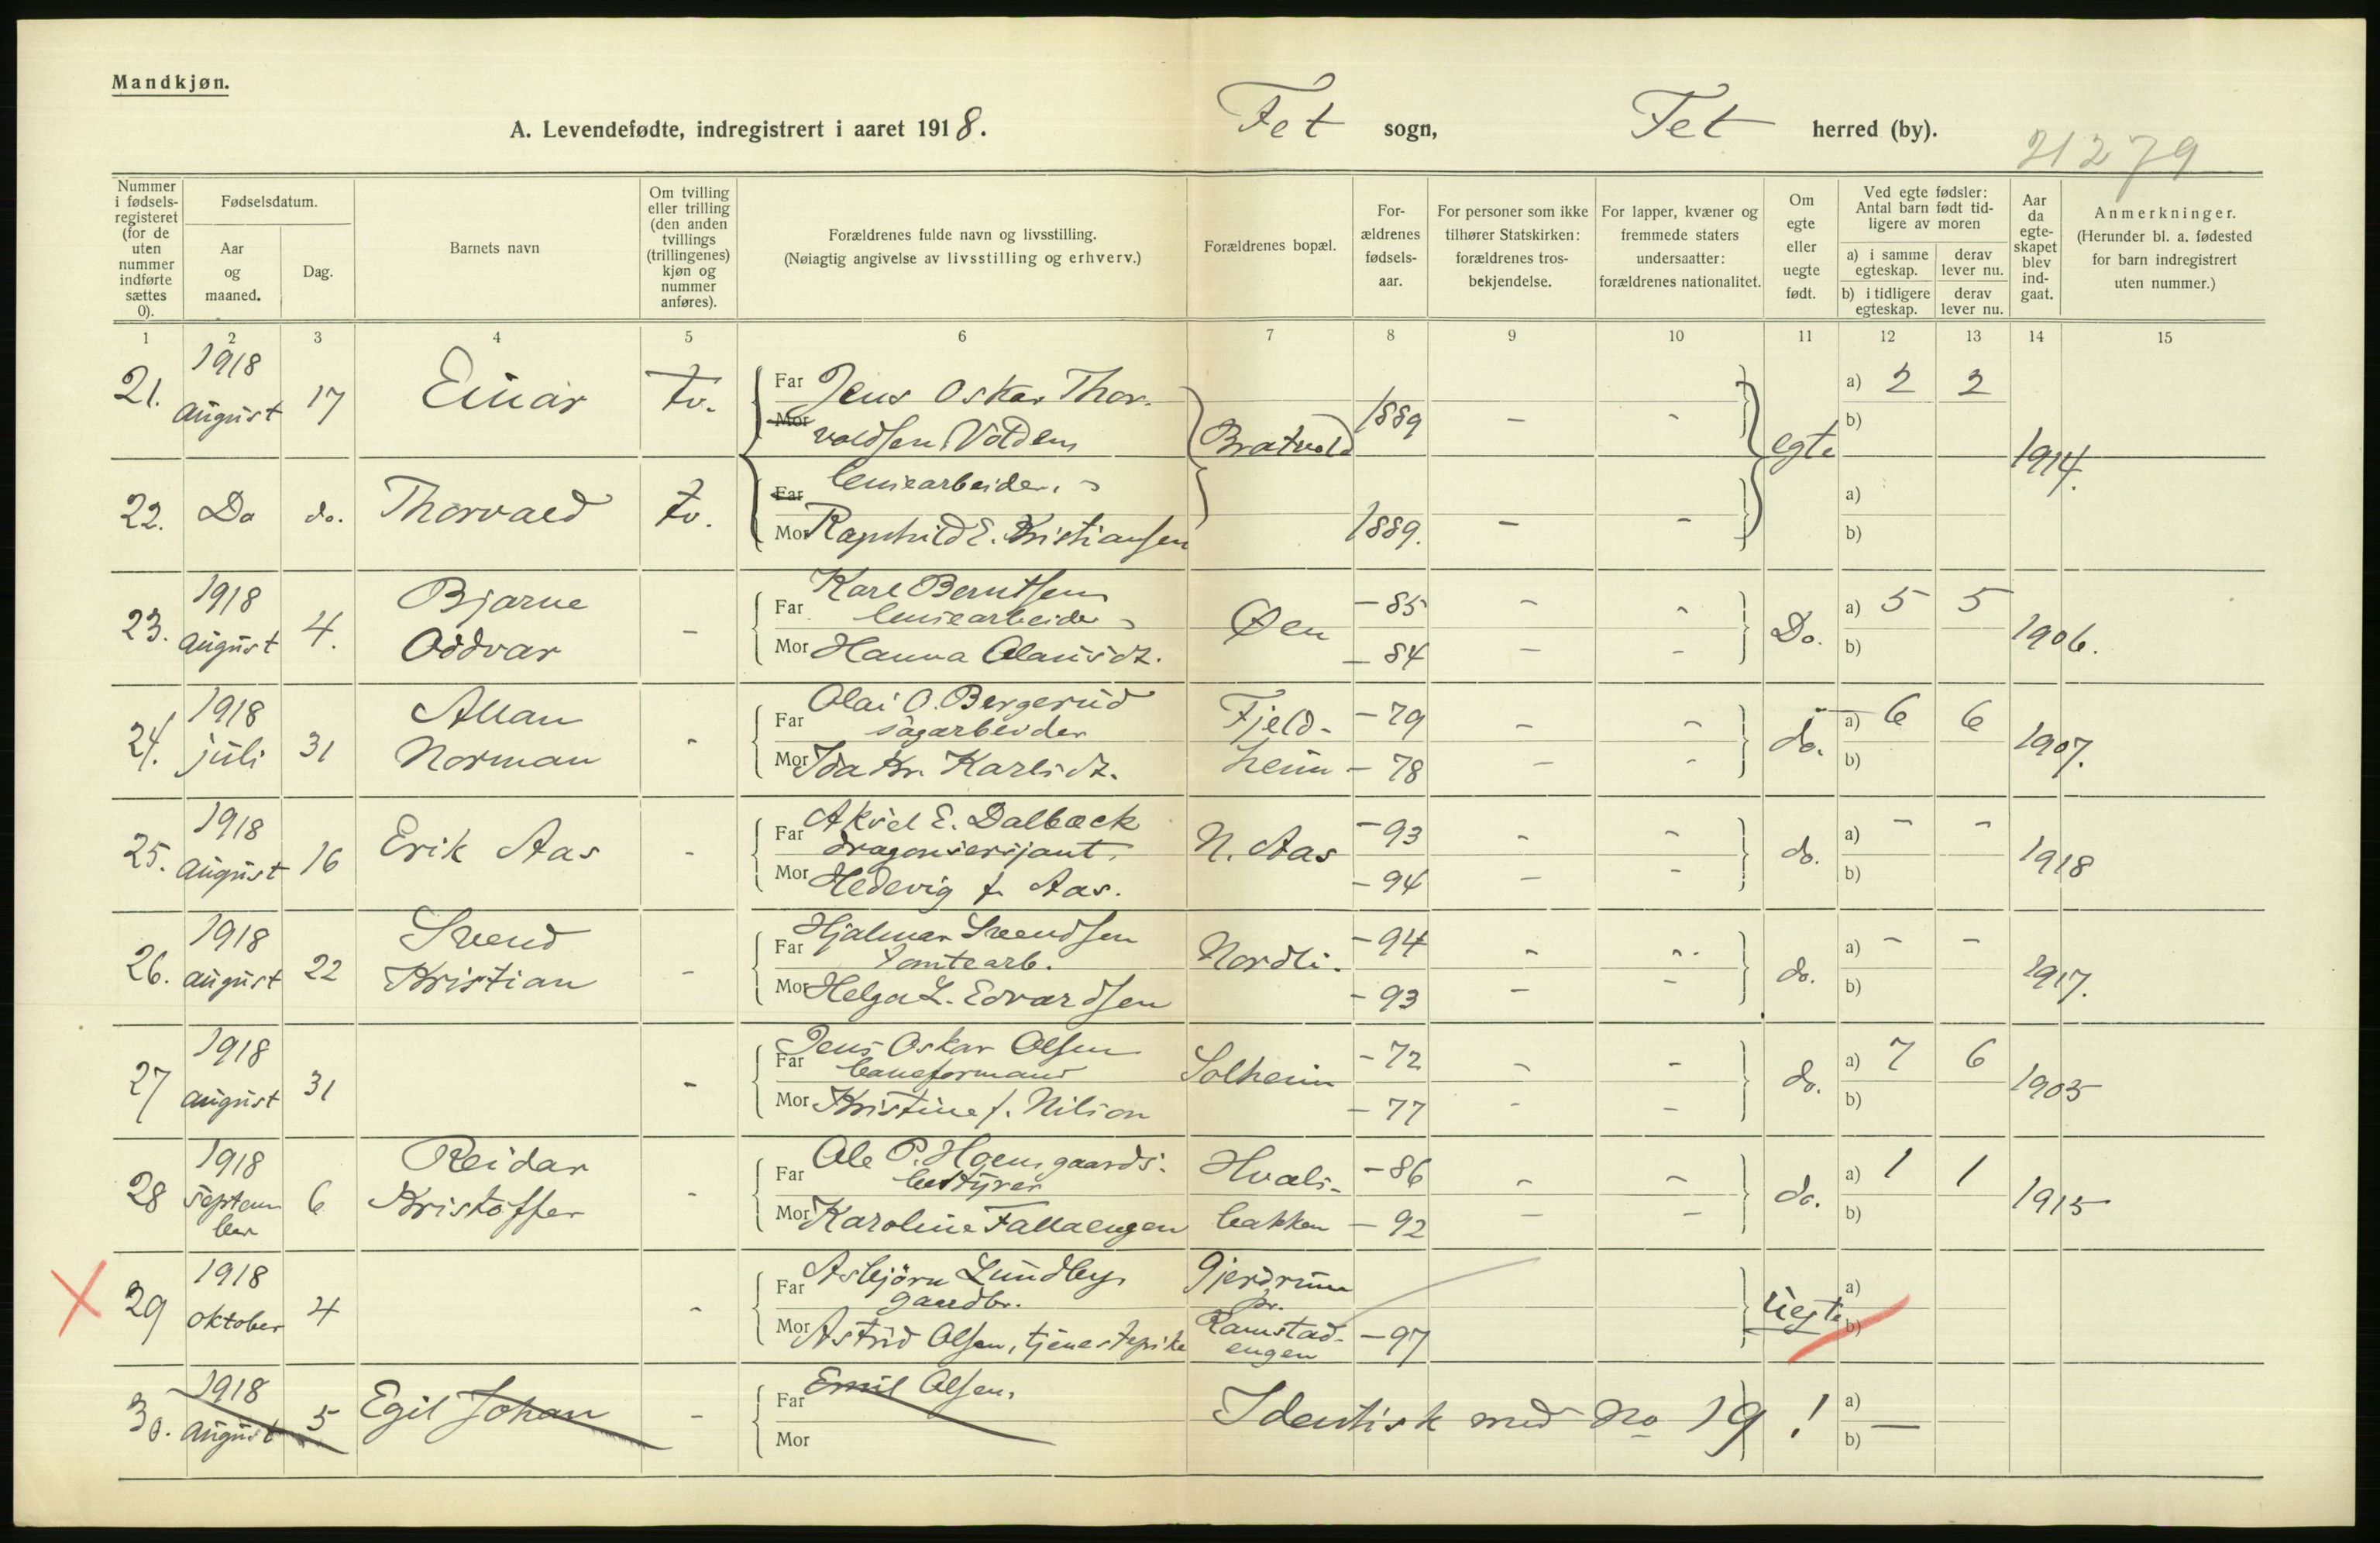 Mandkjøn.
A. Levendefødte, indregistrert i aaret 1918. Fet sogn, Fet herred (by).
21279
Nummer i fødsels-registeret (for de uten nummer indførte sættes 0).
Fødselsdatum.
Aar og maaned.
Dag.
Barnets navn
Om tvilling eller trilling (den anden tvillings (trillingenes) kjøn og nummer anføres).
Forældrenes fulde navn og livsstilling.
(Nøiagtig angivelse av livsstilling og erhverv.)
Forældrenes bopæl.
For-ældrenes fødsels-aar.
For personer som ikke tilhører Statskirken: forældrenes tros-bekjendelse.
For lapper, kvæner og fremmede staters undersaatter: forældrenes nationalitet.
Om egte eller uegte født.
Ved egte fødsler: Antal barn født tid-ligere av moren
a) i samme egteskap. derav lever nu.
b) i tidligere egteskap. derav lever nu.
Aar da egte-skapet blev ind-gaat.
Anmerkninger.
(Herunder bl. a. fødested for barn indregistrert uten nummer.)
1 2 3 4 5 6 7 8 9 10 11 12 13 14 15
21. 1918 august 17 Einar tv. Far Jens Oskar Thor- 1889 - - a) 2 2
Mor voldsen Volden Bratvold egte b) 1914.
22. Do do. Thorvald tv. Far leniearbeider. a)
Mor Ragnhild E. Kristiansen 1889. - - b)
23. 1918 august 4. Bjarne Oddvar - Far Karl Berntsen leniearbeider Øen - 85 - - Do. a) 5 5 1906.
Mor Hanna Olausdt. - 84 - - b)
24. 1918 juli 31 Allan Norman - Far Olai O. Bergerud sagarbeider Fjeld- - 79 - - do. a) 6 6 1907.
Mor Ida Kr. Karlsdt. heim - 78 - - b)
25. 1918 august 16 Erik Aas - Far Aksel E. Dalbæck dragonsersjant. N. Aas - 93 - - do. a) - - 1918
Mor Hedevig f. Aas. - 94 - - b)
26. 1918 august 22 Svend Kristian - Far Hjalmar Svendsen tomtearb. Nordli. - 94 - - do. a) - - 1917.
Mor Helga L. Edvardsen - 93 - - b)
27 1918 august 31 - Far Jens Oskar Olsen baneformand Solheim - 72 - - do. a) 7 6 1903
Mor Kristine f. Nilson - 77 - - b)
28 1918 septem ber 6 Reidar Kristoffer - Far Ole P. Hoem, gaards- bestyrer Hvals- - 86 - - do. a) 1 1 1915
Mor Karoline Fallaengen bakken - 92 - - b)
29 1918 oktober 4 - Far Asbjörn Lundby, gaardbr. Gjerdrum pr. uegte a)
Mor Astrid Olsen, tjenestepike Ramstad- engen - 97 b)
30. 1918 august 5 Egil Johan - Far Emil Olsen. Identisk med No 19! a) -
Mor b)